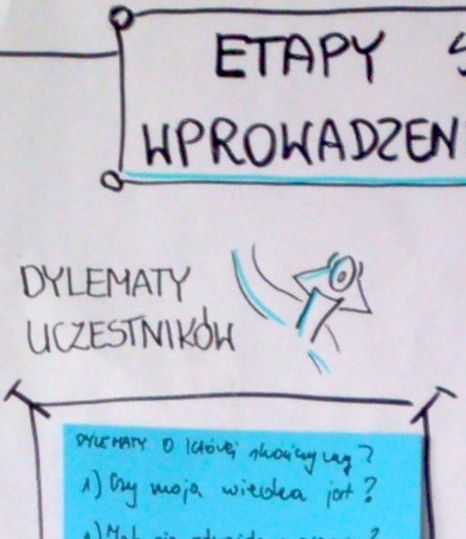 ETAPY S
WPROWADZEN
DYLEMATY
UCZESTNIKÓW
DYLEMATY O której skończymy?
1) Czy moja wiedza jest?